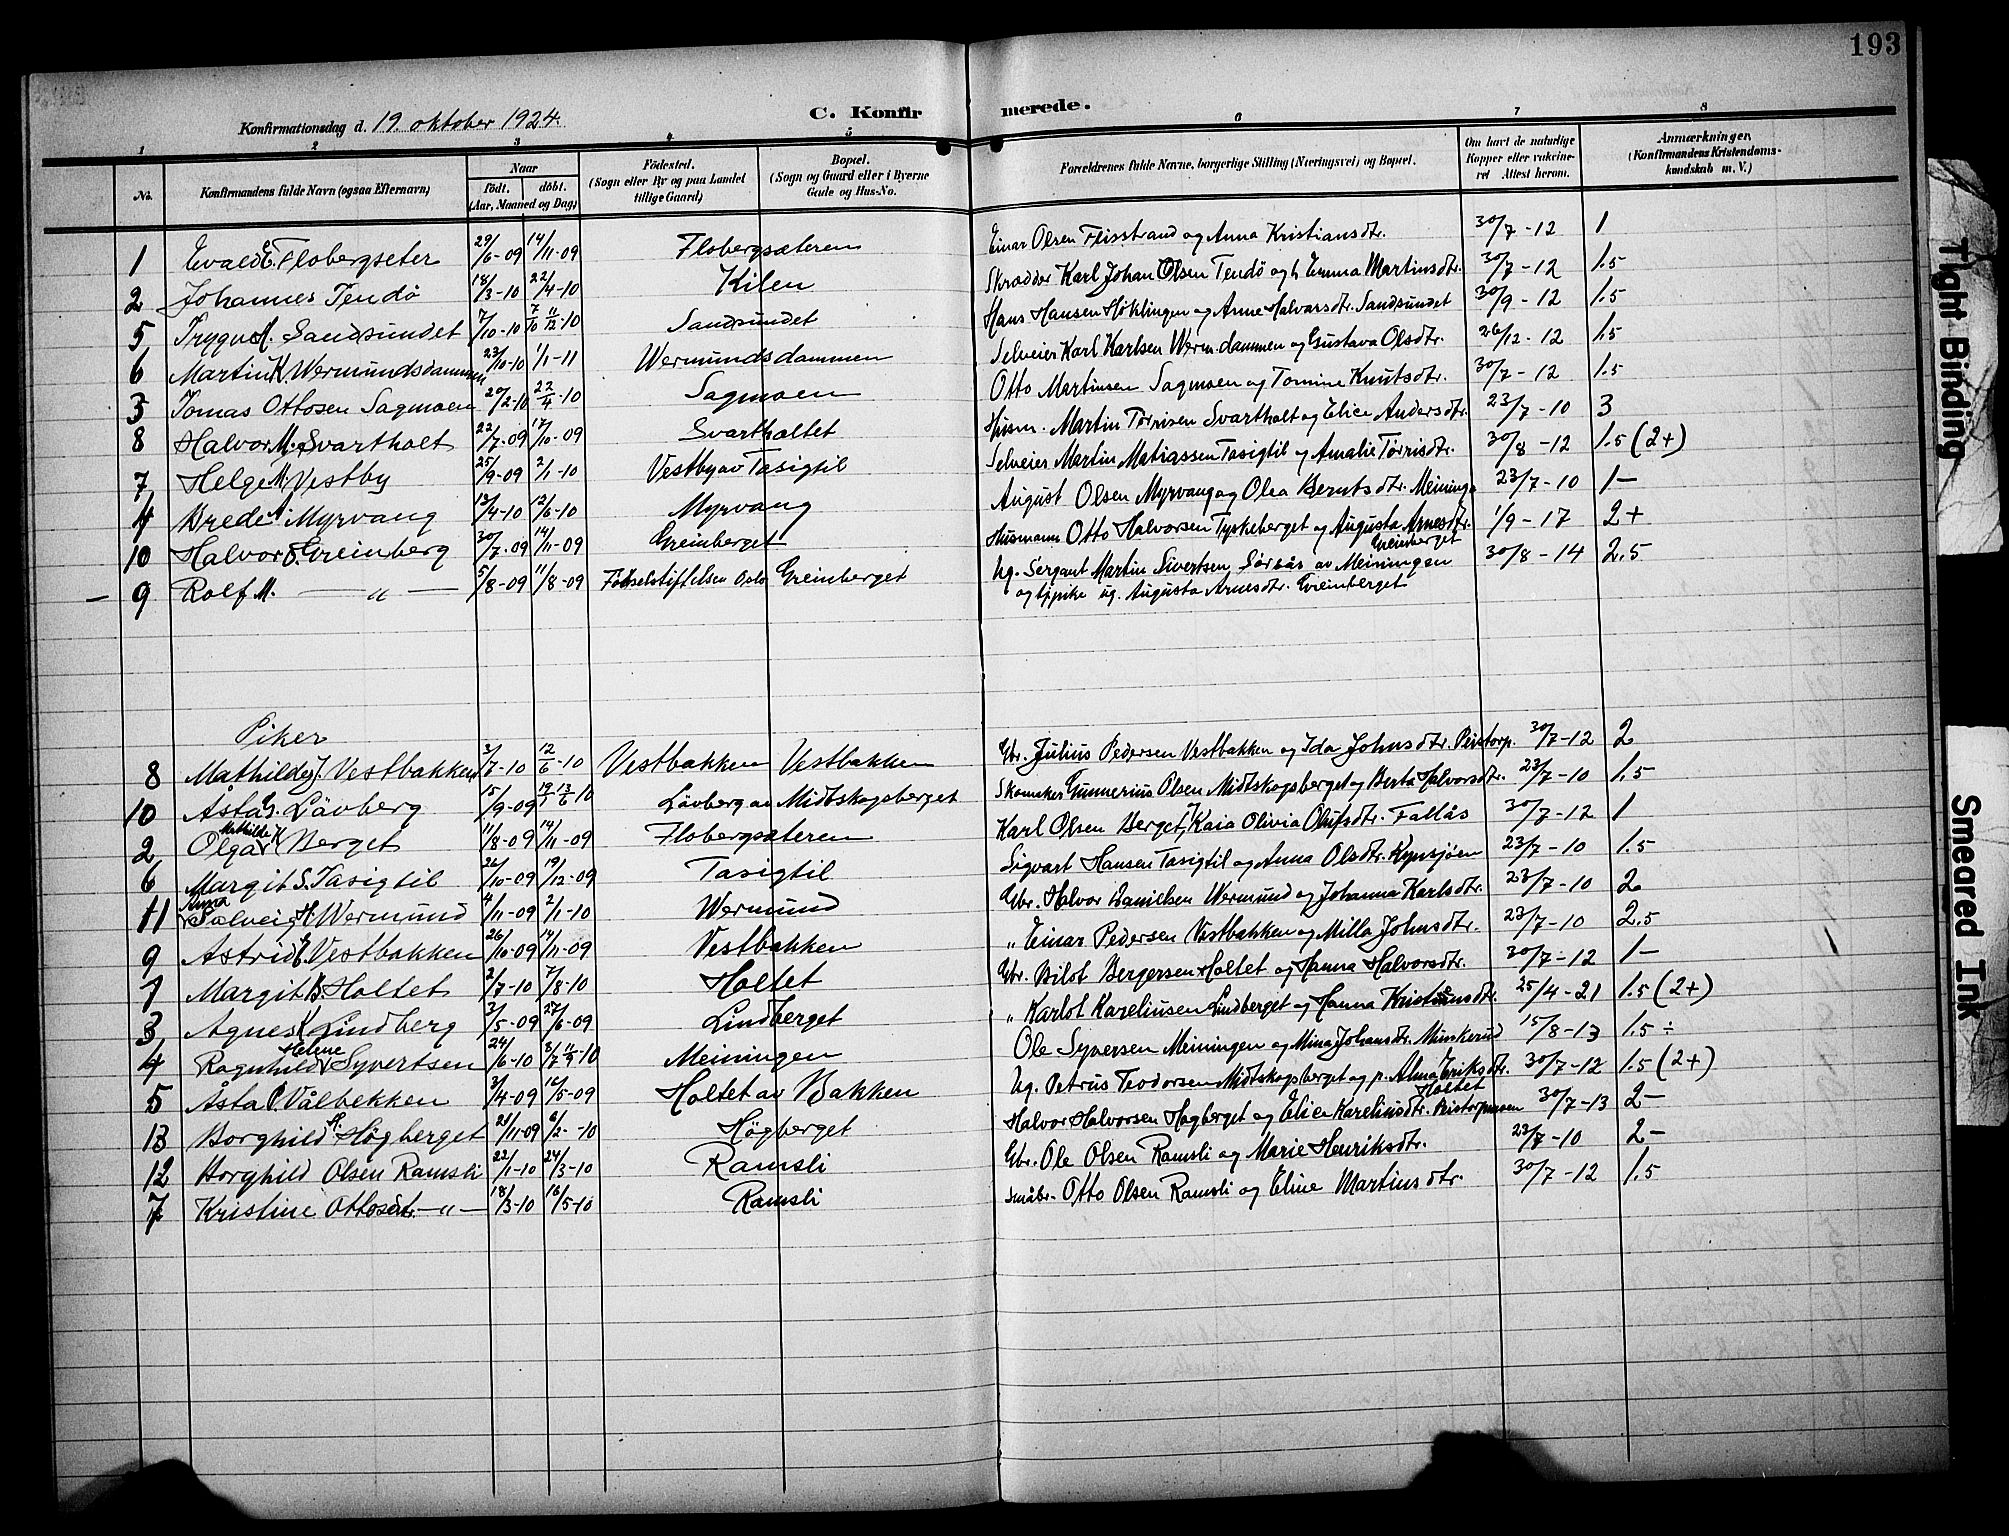 193
Konfirmationsdag d. 19. oktober 1924.
C. Konfirmerede.
1 2 3 4 5 6 7 8
No. Konfirmandens fulde Navn (ogsaa Efternavn) Naar født. døbt. (Aar, Maaned og Dag) Fødested. (Sogn eller By og paa Landet tillige Gaard) Bopæl. (Sogn og Gaard eller i Byerne Gade og Hus-No. Forældrenes fulde Navne, borgerlige Stilling (Næringsvei) og Bopæl. Om havt de naturlige Kopper eller vakcineret Attest herom. Anmærkninger. (Konfirmandens Kristendomskundskab m. V.)
1 Evald E. Flobergseter 29/6-09 14/11-09 Flobergsæteren Einar Olsen Flisstrand og Anna Kristiansdtr. 30/7-12 1
2 Johannes Tendö 18/3-10 22/4-10 Kilen Skrædder Karl Johan Olsen Tendö og h. Emma Martinsdtr. 30/7-12 1.5
5 Trygve H. Sandsundet 7/10-10 7/10 11/12-10 Sandsundet Hans Hansen Höklingen og Anne Halvorsdtr. Sandsundet 30/9-12 1.5
6 Martin K. Wermundsdammen 23/10-10 1/1-11 Wermundsdammen Selveier Karl Karlsen Werm.dammen og Gustava Olsdtr. 26/12-12 1.5
3 Tomas Ottosen Sagmoen 20/2-10 22/4-10 Sagmoen Otto Martinsen Sagmoen og Tomine Knutsdtr. 30/7-12 1.5
8 Halvor M. Svartholt 22/7-09 17/10-09 Svartholtet Husm. Martin Törrisen Svartholt og Elice Andersdtr. 23/7-10 3
7 Helge M. Vestby 25/9-09 2/1-10 Vestby av Tasigtil Selveier Martin Matiassen Tasigtil og Amalie Törrisdtr. 30/8-12 1.5 (2+)
4 Brede A. Myrvang 13/4-10 12/6-10 Myrvang August Olsen Myrvang og Olea Berntsdtr. Meininga 23/7-10 1-
10 Halvor O. Greinberg 30/7-09 14/11-09 Greinberget Husmann Otto Halvorsen Tyskeberget og Augusta Arnesdtr. Greinberget 1/9-17 2+
9 Rolf M. -"- 5/8-09 11/8-09 Fødselsstiftelsen Oslo Greinberget Ug. Sergant Martin Sivertsen Sørbås av Meiningen 30/8-14 2.5
og tj.pike ug. Augusta Arnesdtr. Greinberget
Piker
8 Mathilde J. Vestbakken 3/7-10 12/6-10 Vestbakken Vestbakken Gbr. Julius Pedersen Vestbakken og Ida Johnsdtr. Peistorp. 30/7-12 2
10 Åsta G. Lövberg 15/9-09 19/1 13/6-10 Lövberg av Midtskogsberget Skomaker Gunnerius Olsen Midtskogsberget og Berta Halvorsdtr. 23/7-10 1.5
2 Olga Mathilde K Berget 11/8-09 14/11-09 Flobergsæteren Karl Olsen Berget, Kaia Olivia Olufsdtr. Fallås 30/7-12 1
6 Margit S. Tasigtil 26/10-09 19/12-09 Tasigtil Sigvart Hansen Tasigtil og Anna Olsdtr. Kynsjöen 23/7-10 1.5
11 Anna Solveig H. Wermund 4/11-09 2/1-10 Wermund Gbr. Halvor Danielsen Wermund og Johanna Karlsdtr. 23/7-10 2
9 Astrid E. Vestbakken 26/10-09 14/11-09 Vestbakken " Einar Pedersen Vestbakken og Milla Johnsdtr. 23/7-10 2.5
1 Margit B. Holtet 2/7-10 7/8-10 Holtet Gbr. Bilot Bergersen Holtet og Hanna Halvorsdtr. 30/7-12 1-
3 Agnes K Lindberg 3/5-09 27/6-09 Lindberget " Karlot Kareliusen Lindberget og Hanna Kristiansdtr. 25/4-21 1.5 (2+)
4 Ragnhild Helene Syvertsen 24/6-10 8/7 11/9-10 Meiningen Ole Syversen Meiningen og Mina Johansdtr. Munkerud 15/8-13 1.5 ÷
5 Åsta P. Vålbekken 3/4-09 16/5-09 Holtet av Bakken Ug. Petrus Teodorsen Midtskogsberget og p. Alma Eriksdtr. Holtet 30/7-12 1.5 (2+)
13 Borghild R. Högberget 21/11-09 6/2-10 Högberget Halvor Halvorsen Høgberget og Elice Kareliusdtr. 30/7-13 2-
12 Borghild Olsen Ramsli 22/1-10 24/3-10 Ramsli Gbr. Ole Olsen Ramsli og Marie Henriksdtr. 23/7-10 2-
7 Kristine Ottosdtr. -"- 18/3-10 16/5-10 Ramsli Småbr. Otto Olsen Ramsli og Eline Martinsdtr. 30/7-12 1.5
Tight Binding
Smeared Ink